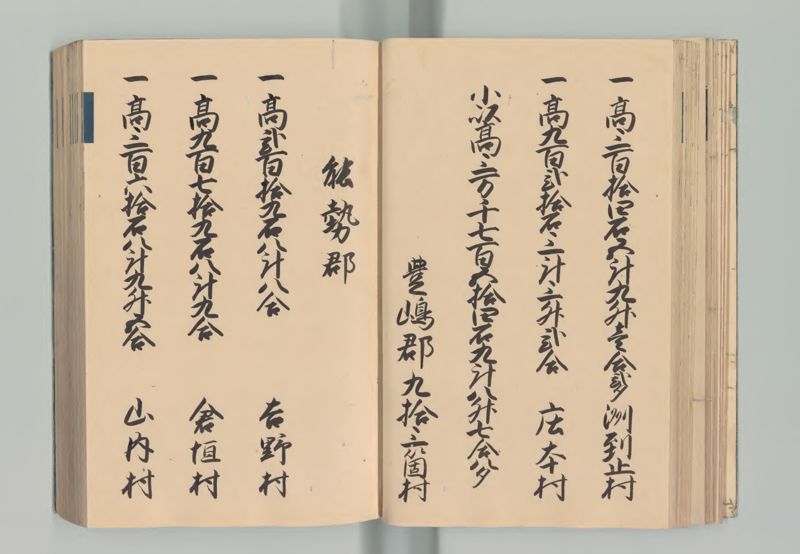 一高三百拾四石五斗九升壱合弐夕 洲到止村
一高九百弐拾石三斗三升弐合 庄本村
小以高三万千七百五拾四石九斗八升七合八夕
豊嶋郡九拾三箇村
能勢郡
一高弐百拾九石八斗八合 吉野村
一高九百七拾九石八斗九合 倉垣村
一高三百六拾石八斗九升五合 山内村